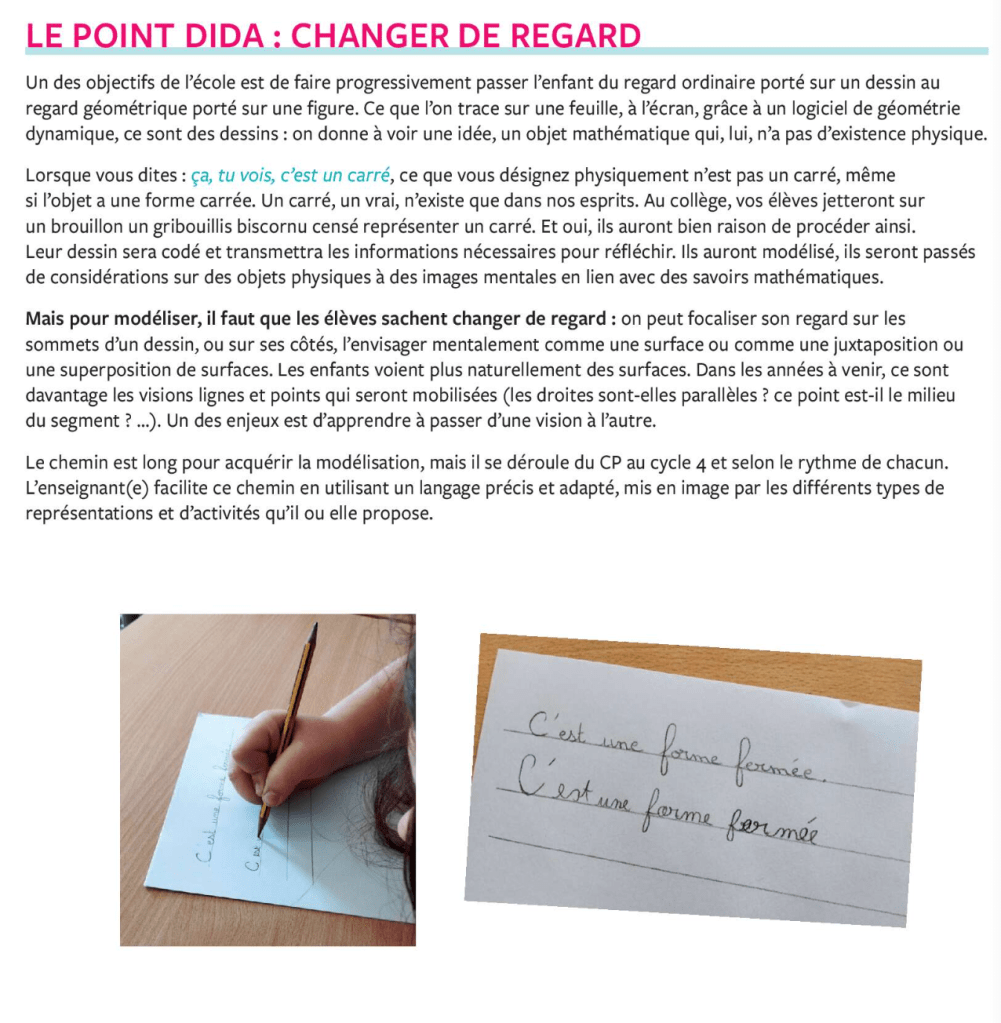 LE POINT DIDA : CHANGER DE REGARD
Un des objectifs de l’école est de faire progressivement passer l’enfant du regard ordinaire porté sur un dessin au
regard géométrique porté sur une figure. Ce que l’on trace sur une feuille, à l’écran, grâce à un logiciel de géométrie
dynamique, ce sont des dessins : on donne à voir une idée, un objet mathématique qui, lui, n’a pas d’existence physique.
Lorsque vous dites : ça, tu vois, c’est un carré, ce que vous désignez physiquement n’est pas un carré, même
si l’objet a une forme carrée. Un carré, un vrai, n’existe que dans nos esprits. Au collège, vos élèves jetteront sur
un brouillon un gribouillis biscornu censé représenter un carré. Et oui, ils auront bien raison de procéder ainsi.
Leur dessin sera codé et transmettra les informations nécessaires pour réfléchir. Ils auront modélisé, ils seront passés
de considérations sur des objets physiques à des images mentales en lien avec des savoirs mathématiques.
Mais pour modéliser, il faut que les élèves sachent changer de regard : on peut focaliser son regard sur les
sommets d’un dessin, ou sur ses côtés, l’envisager mentalement comme une surface ou comme une juxtaposition ou
une superposition de surfaces. Les enfants voient plus naturellement des surfaces. Dans les années à venir, ce sont
davantage les visions lignes et points qui seront mobilisées (les droites sont-elles parallèles ? ce point est-il le milieu
du segment ? ...). Un des enjeux est d’apprendre à passer d’une vision à l’autre.
Le chemin est long pour acquérir la modélisation, mais il se déroule du CP au cycle 4 et selon le rythme de chacun.
L’enseignant(e) facilite ce chemin en utilisant un langage précis et adapté, mis en image par les différents types de
représentations et d’activités qu’il ou elle propose.
C'est une forme
C'est
C'est une forme fermée.
C'est une forme fermée